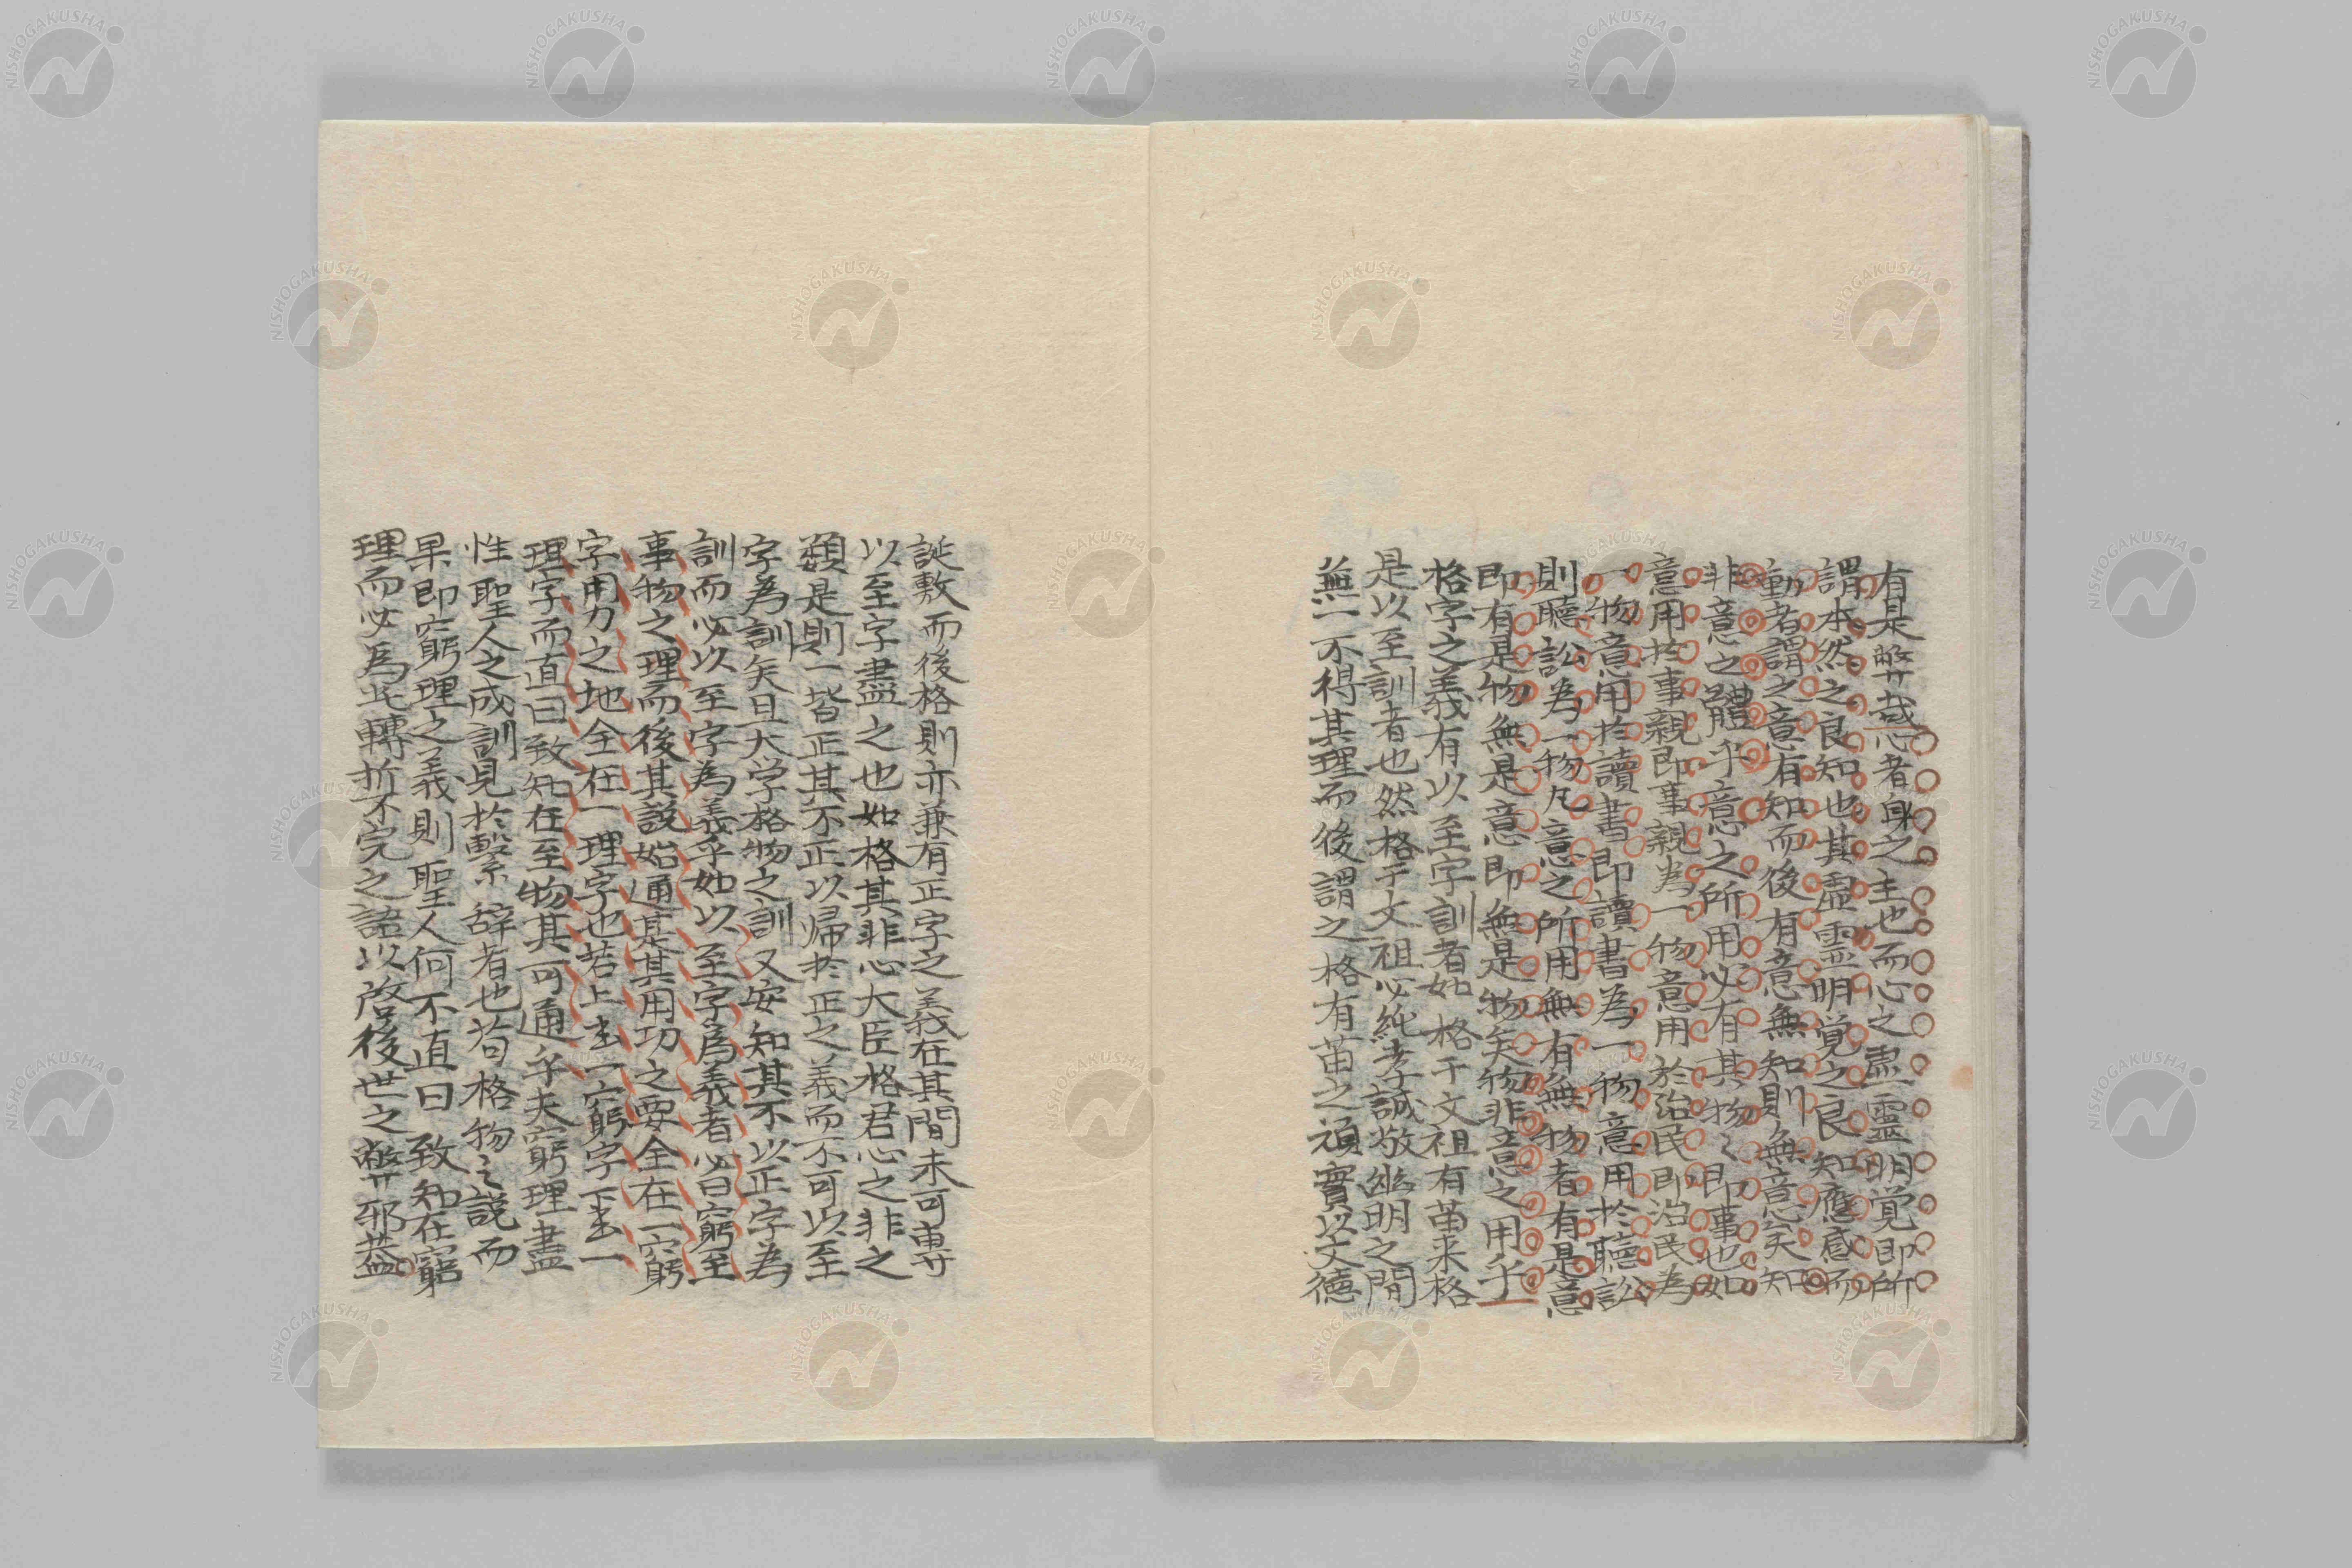 有是弊哉心者身之主也而心之虚霊明覚即所
謂本然之良知也其虚霊明覚之良知應感而
動者謂之意有知而後有意無知則無意矣知
非意之體乎意之所用必有其物〻即事也如
意用於事親即事親為一物意用於治民即治民為
一物意用於讀書即讀書為一物意用於聽訟
則聽訟為一物凡意之所用無有無物者有是意
即有是物無是意即無是物矣物非意之用乎
格字之義有以至字訓者如格于文祖有苗来格
是以至訓者也然格于文祖必純孝誠敬幽明之間
無一不得其理而後謂之格有苗之頑實以文德
誕敷而後格則亦兼有正字之義在其間未可專
以至字盡之也如格其非心大臣格君心之非之
類是則一皆正其不正以帰於正之義而不可以至
字為訓矣且大学格物之訓又安知其不以正字為
訓而必以至字為義乎如以至字為義者必曰窮至
事物之理而後其説始通是其用功之要全在一窮
字用力之地全在一理字也若上去一窮字下去一
理字而直曰致知在至物其可通乎夫窮理盡
性聖人之成訓見於繫辞者也苟格物之説而
果即窮理之義則聖人何不直曰致知在窮
理而必為此轉折不完之語以啓後世之弊邪蓋
NISHOGAKUSHA